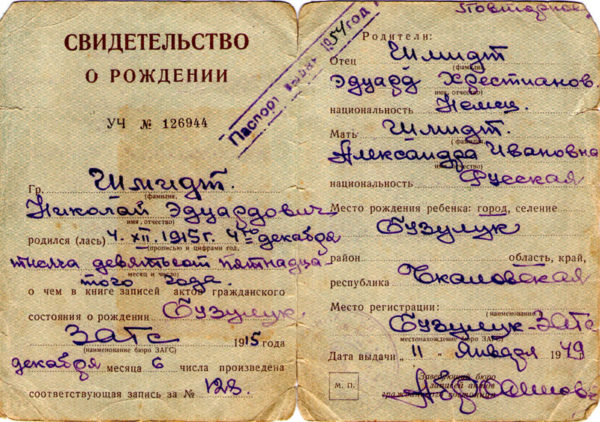 СВИДЕТЕЛЬСТВО
О РОЖДЕНИИ
УЧ № 126944
Паспорт выдан 1954 год
Гр. Шмидт.
(фамилия,
Николай Эдуардович
имя, отчество)
родился (лась) 4. XII. 1915 г. 4го декабря
(прописью и цифрами год,
тысяча девятьсот пятнадца-
месяц и число)
того года.
о чем в книге записей актов гражданского
состояния о рождении Бузулук.
ЗАГС 1915 года
(наименование бюро ЗАГС)
декабря месяца 6 числа произведена
соответствующая запись за № 123.
Повторное
Родители:
Отец Шмидт
(фамилия,
Эдуард Хрестианов.
имя, отчество)
национальность Немец.
Мать Шмидт.
(фамилия,
Александра Ивановна
имя, отчество)
национальность Русская
Место рождения ребенка: город, селение
Бузулук
район область, край,
республика Чкаловская
Место регистрации:
(наименование
Бузулук-ЗАГС
местонахождение бюро ЗАГС)
Дата выдачи „11 Января 1949
М. П.
Заведующий бюро
записей актов
гражданского состояния